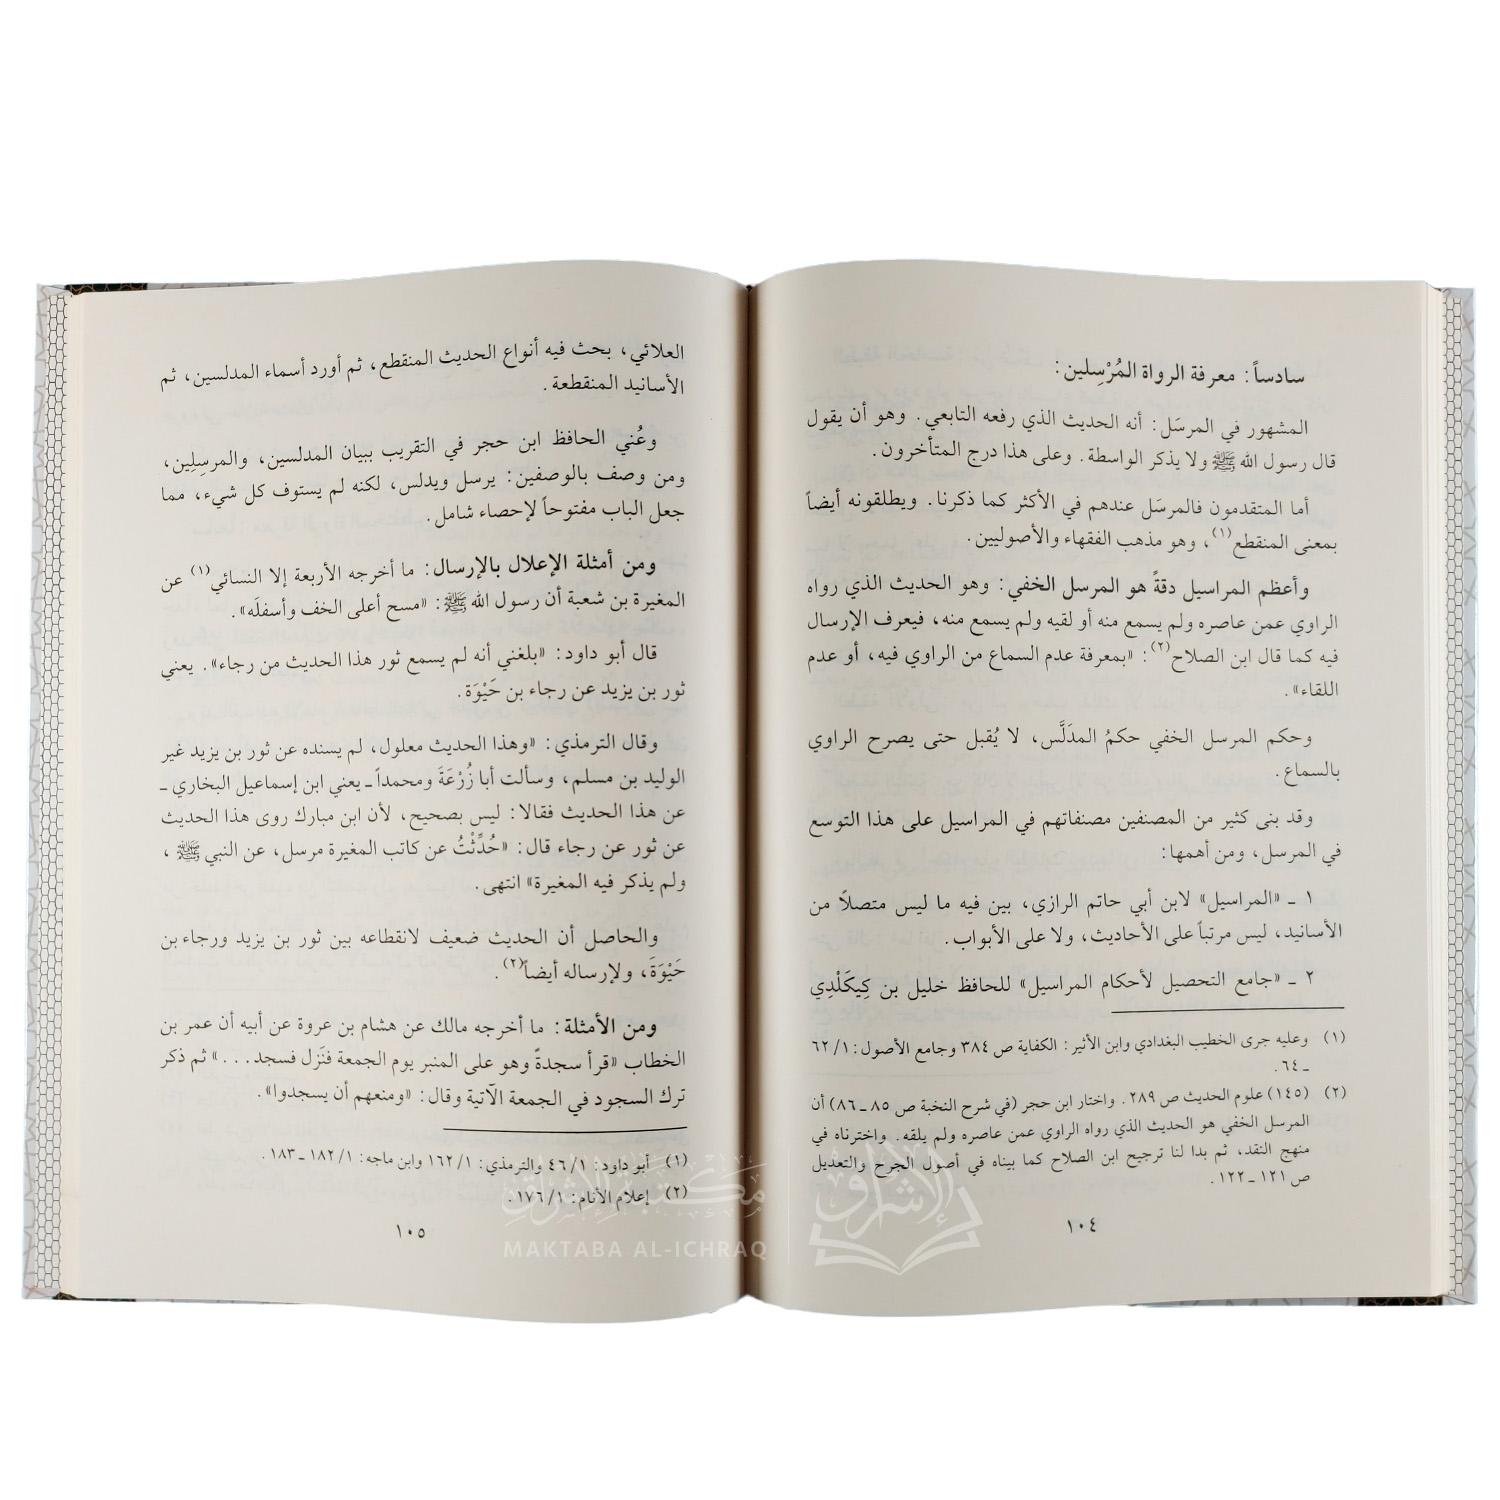 سادساً: معرفة الرواة المُرْسِلين:
المشهور في المرسَل: أنه الحديث الذي رفعه التابعي. وهو أن يقول
قال رسول الله ﷺ ولا يذكر الواسطة. وعلى هذا درج المتأخرون.
أما المتقدمون فالمرسَل عندهم في الأكثر كما ذكرنا. ويطلقونه أيضاً
بمعنى المنقطع(١)، وهو مذهب الفقهاء والأصوليين.
وأعظم المراسيل دقةً هو المرسل الخفي: وهو الحديث الذي رواه
الراوي عمن عاصره ولم يسمع منه أو لقيه ولم يسمع منه، فيعرف الإرسال
فيه كما قال ابن الصلاح(٢): «بمعرفة عدم السماع من الراوي فيه، أو عدم
اللقاء».
وحكم المرسل الخفي حكمُ المدَلَّس، لا يُقبل حتى يصرح الراوي
بالسماع.
وقد بنى كثير من المصنفين مصنفاتهم في المراسيل على هذا التوسع
في المرسل، ومن أهمها:
١ ـ «المراسيل» لابن أبي حاتم الرازي، بين فيه ما ليس متصلًا من
الأسانيد، ليس مرتباً على الأحاديث، ولا على الأبواب.
٢ ـ «جامع التحصيل لأحكام المراسيل» للحافظ خليل بن كِيكَلْدِي
(١) وعليه جرى الخطيب البغدادي وابن الأثير: الكفاية ص ٣٨٤ وجامع الأصول: ١/ ٦٢
ـ ٦٤.
(٢) (١٤٥) علوم الحديث ص ٢٨٩. واختار ابن حجر (في شرح النخبة ص ٨٥ ـ ٨٦) أن
المرسل الخفي هو الحديث الذي رواه الراوي عمن عاصره ولم يلقه. واخترناه في
منهج النقد، ثم بدا لنا ترجيح ابن الصلاح كما بيناه في أصول الجرح والتعديل
ص ١٢١ ـ ١٢٢.
١٠٤
العلائي، بحث فيه أنواع الحديث المنقطع، ثم أورد أسماء المدلسين، ثم
الأسانيد المنقطعة.
وعُني الحافظ ابن حجر في التقريب ببيان المدلسين، والمرسِلِين،
ومن وصف بالوصفين: يرسل ويدلس، لكنه لم يستوف كل شيء، مما
جعل الباب مفتوحاً لإحصاء شامل.
ومن أمثلة الإعلال بالإرسال: ما أخرجه الأربعة إلا النسائي(١) عن
المغيرة بن شعبة أن رسول الله ﷺ: «مسح أعلى الخف وأسفلَه».
قال أبو داود: «بلغني أنه لم يسمع ثور هذا الحديث من رجاء». يعني
ثور بن يزيد عن رجاء بن حَيْوَة.
وقال الترمذي: «وهذا الحديث معلول، لم يسنده عن ثور بن يزيد غير
الوليد بن مسلم، وسألت أبا زُرْعَةَ ومحمداً ـ يعني ابن إسماعيل البخاري ـ
عن هذا الحديث فقالا: ليس بصحيح، لأن ابن مبارك روى هذا الحديث
عن ثور عن رجاء قال: «حُدِّثْتُ عن كاتب المغيرة مرسل، عن النبي ﷺ،
ولم يذكر فيه المغيرة» انتهى.
والحاصل أن الحديث ضعيف لانقطاعه بين ثور بن يزيد ورجاء بن
حَيْوَةَ، ولإرساله أيضاً(٢).
ومن الأمثلة: ما أخرجه مالك عن هشام بن عروة عن أبيه أن عمر بن
الخطاب «قرأ سجدةً وهو على المنبر يوم الجمعة فنَزل فسجد...» ثم ذكر
ترك السجود في الجمعة الآتية وقال: «ومنعهم أن يسجدوا».
(١) أبو داود: ١/ ٤٦ والترمذي: ١/ ١٦٢ وابن ماجه: ١/ ١٨٢ ـ ١٨٣.
(٢) إعلام الأنام: ١/ ١٧٦.
١٠٥
مكتبة الإشراق
MAKTABA AL-ICHRAQ
الإشراق